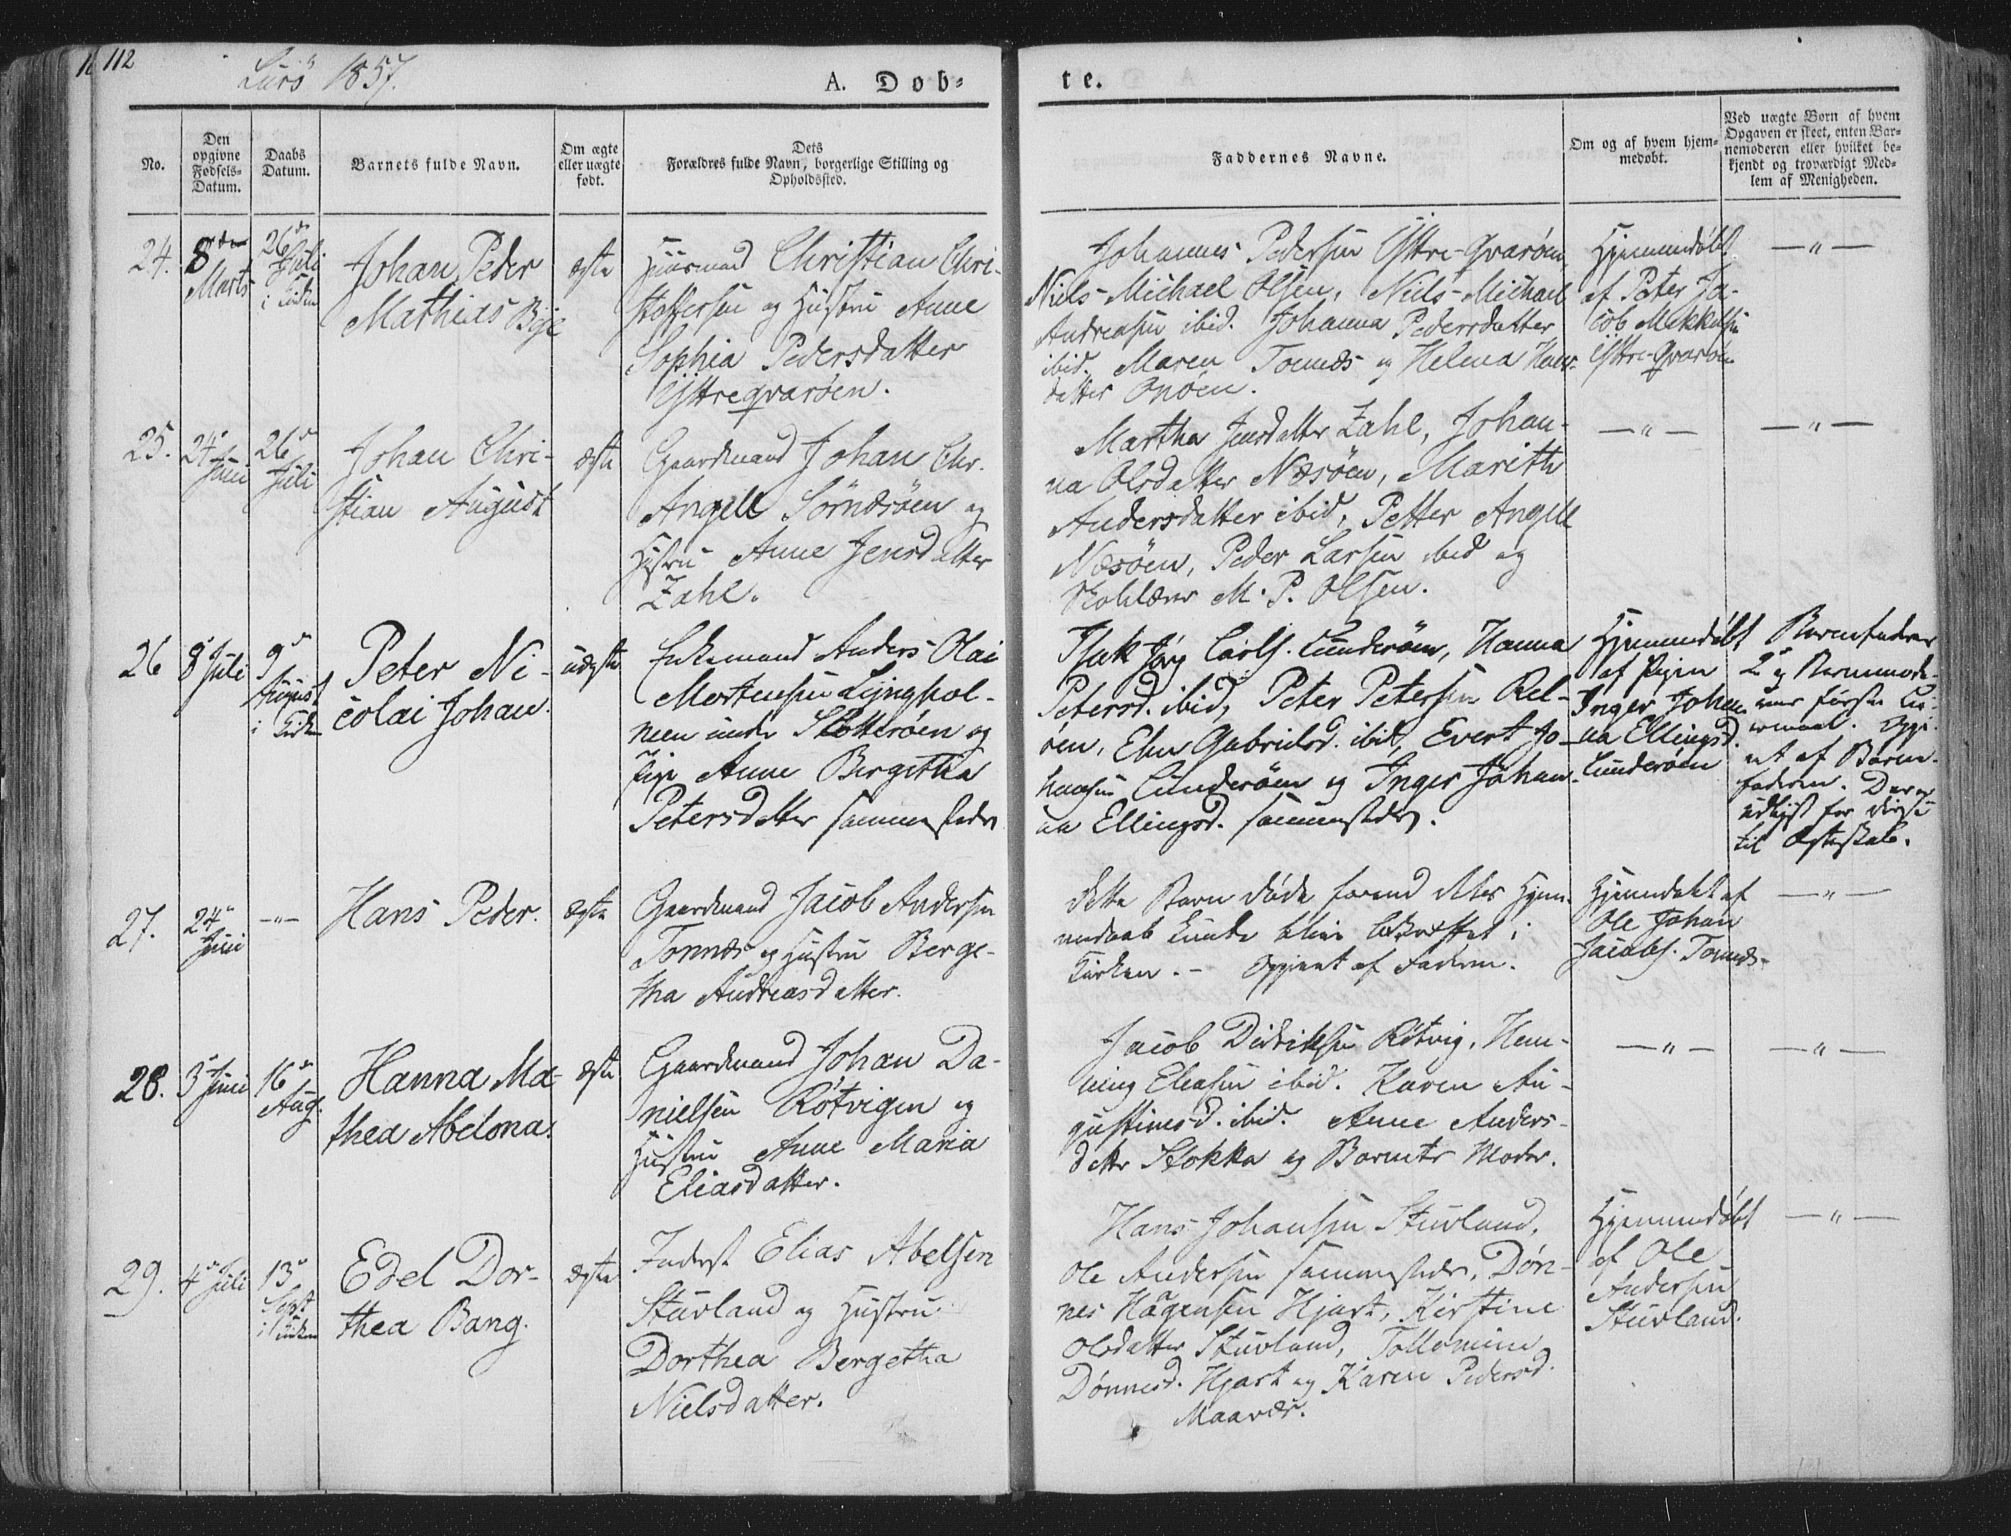 112
Lurö 1857.
A. Døb-
te.
No.
Den
opgivne
Fødsels-
Datum.
Daabs
Datum.
Barnets fulde Navn.
Om ægte
eller uægte
født.
Dets
Forældres fulde Navn, borgerlige Stilling og
Opholdssted.
Faddernes Navne.
Om og af hvem hjem-
medøbt.
Ved uægte Børn af hvem
Opgaven er skeet, enten Bar-
nemoderen eller hvilket be-
kjendt og troværdigt Med-
lem af Menigheden.
24.
8de
Marts
26de
Juli
i Kirken
Johan Peder
Mathias
ægte
Huusmand Christian Chri-
stoffersen og Hustru Anne
Sophia Pedersdatter
Yttreqvarøen.
Johannes Pedersen Yttre-qvarøen,
Niels-Michael Olsen, Niels-Michael
Andreasen ibid. Johanna Pedersdatter
ibid. Maren Tonnes og Helena Hans-
datter Onøen.
Hjemmedøbt
af Peter Ja-
cob Mikkelsen
Yttre-qvarøen
— " —
25.
24de
Juni
26de
Juli
Johan Chri-
stian August
ægte
Gaardmand Johan Chr.
Angell Sörnæsøen og
Hustru Anne Jensdatter
Zahl.
Martha Jensdatter Zahl, Johan-
na Olsdatter Næsøen, Marith
Andersdatter ibid, Petter Angell
Næsøen, Peder Larsen ibid og
Skolelærer M. P. Olsen.
— " —
— " —
26
8de Juli
9de
August
i Kirken
Peter Ni-
colai Johan.
uægte
Enkemand Anders Olai
Mortensen Lynghol-
men under Slotterøen og
Pige Anne Bergitha
Petersdatter sammesteds
Isak Jörg Carls. Lunderøen, Hanna
Petersd. ibid, Peter Petersen Rel-
øen, Elen Gabrielsd. ibid, Evert Jo-
hansen Lunderøen og Inger Johan-
na Ellingsd. sammesteds.
Hjemmedøbt
af Pigen
Inger Johan-
na Ellingsd.
Lunderøen
Barnefaderens
2de og Barnemode-
rens første Lei-
ermaal. Opgi-
vet af Barne-
faderen. Der er
udlyst for disse
til Ægteskab.
27.
24de
Juni
— " —
Hans Peder.
ægte
Gaardmand Jacob Andersen
Tonnæs og Hustru Berge-
tha Andreasdatter.
Dette Barn døde forend dets Hjem-
medaab kunde blive bekræftet i
Kirken. – Opgivet af Faderen.
Hjemmedøbt af
Ole Johan
Jacobs. Tonnæs-
— " —
28.
3de Juni
16de
Aug.
Hanna Ma-
thea Abelona.
ægte
Gaardmand Johan Da-
nielsen Røtvigen og
Hustru Anne Maria
Eliasdatter.
Jacob Didriksen Røtvig, Hen-
ning Eliasen ibid. Karen Au-
gustinusd. ibid. Anne Anders-
datter Stokka og Barnets Moder.
— " —
— " —
29.
4de Juli
13de
Sept
i Kirken
Edel Dor-
thea Bang.
ægte
Inderst Elias Abelsen
Stuvland og Hustru
Dorthea Bergetha
Nielsdatter.
Hans Johansen Stuvland,
Ole Andersen sammesteds, Døn-
nes Hågensen Hjart, Kirstine
Olsdatter Stuvland, Tollomine
Dønnesd. Hjart og Karen Pedersd.
Maavær.
Hjemmedøbt
af Ole
Andersen
Stuvland.
— " —